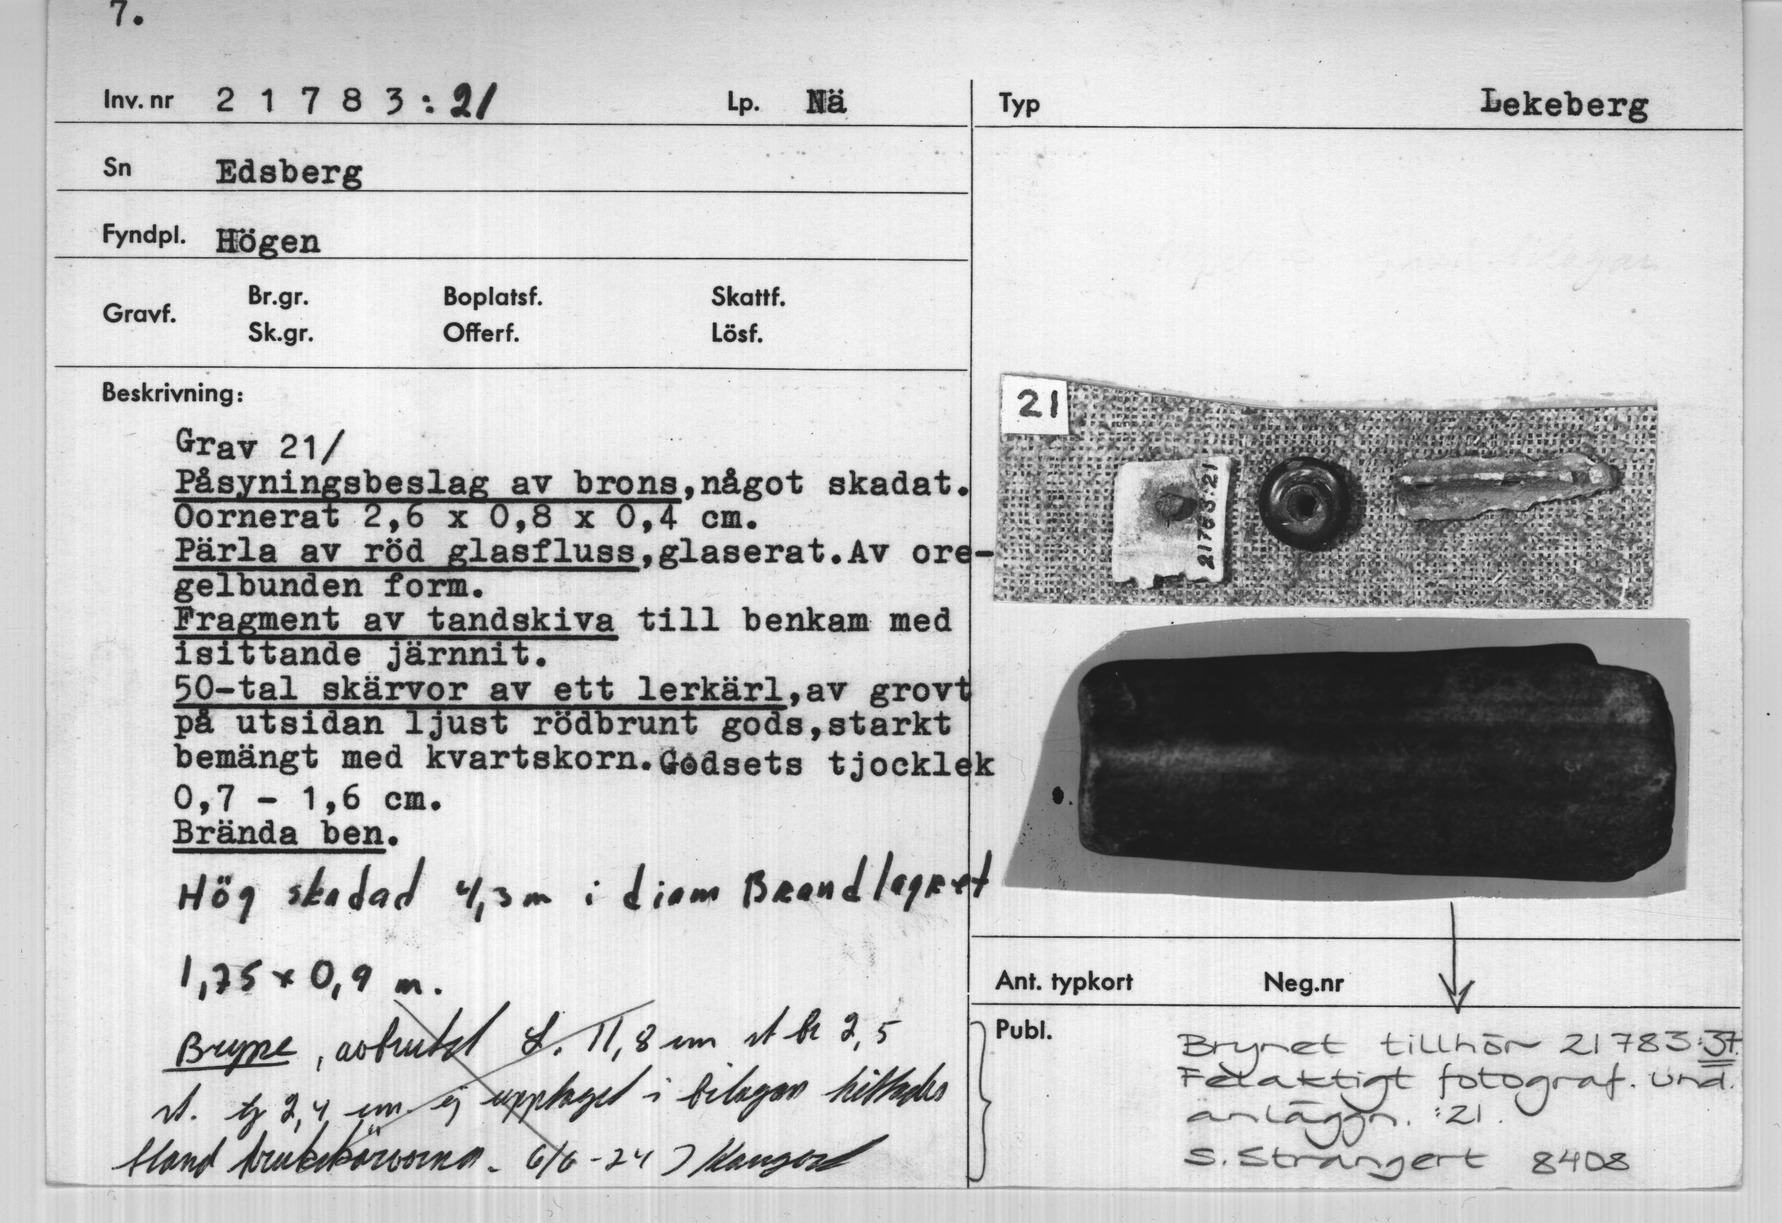 7.
Inv. nr 21783:21 Lp. Nä
Typ Lekeberg
Sn Edsberg
Fyndpl. Högen
Gravf. Br.gr. Boplatsf. Skattf.
Sk.gr. Offerf. Lösf.
Beskrivning:
Grav 21/
Påsyningsbeslag av brons,något skadat.
Oornerat 2,6 x 0,8 x 0,4 cm.
Pärla av röd glasfluss,glaserat.Av ore-
gelbunden form.
Fragment av tandskiva till benkam med
isittande järnnit.
50-tal skärvor av ett lerkärl,av grovt
på utsidan ljust rödbrunt gods,starkt
bemängt med kvartskorn.Godsets tjocklek
0,7 - 1,6 cm.
Brända ben.
Hög skadad 4,3 m i diam Brandlagret
1,75 x 0,9 m.
Bryne, avbrutet L. 11,8 cm st br 2,5
st. tj 2,4 cm ej upptaget i bilagan hittades
bland krukskärvorna. 6/6-24
21
21783:21
Ant. typkort Neg.nr
Publ.
Brynet tillhör 21783:37.
Felaktigt fotograf. und.
anläggn. :21.
S. Strangert 8408